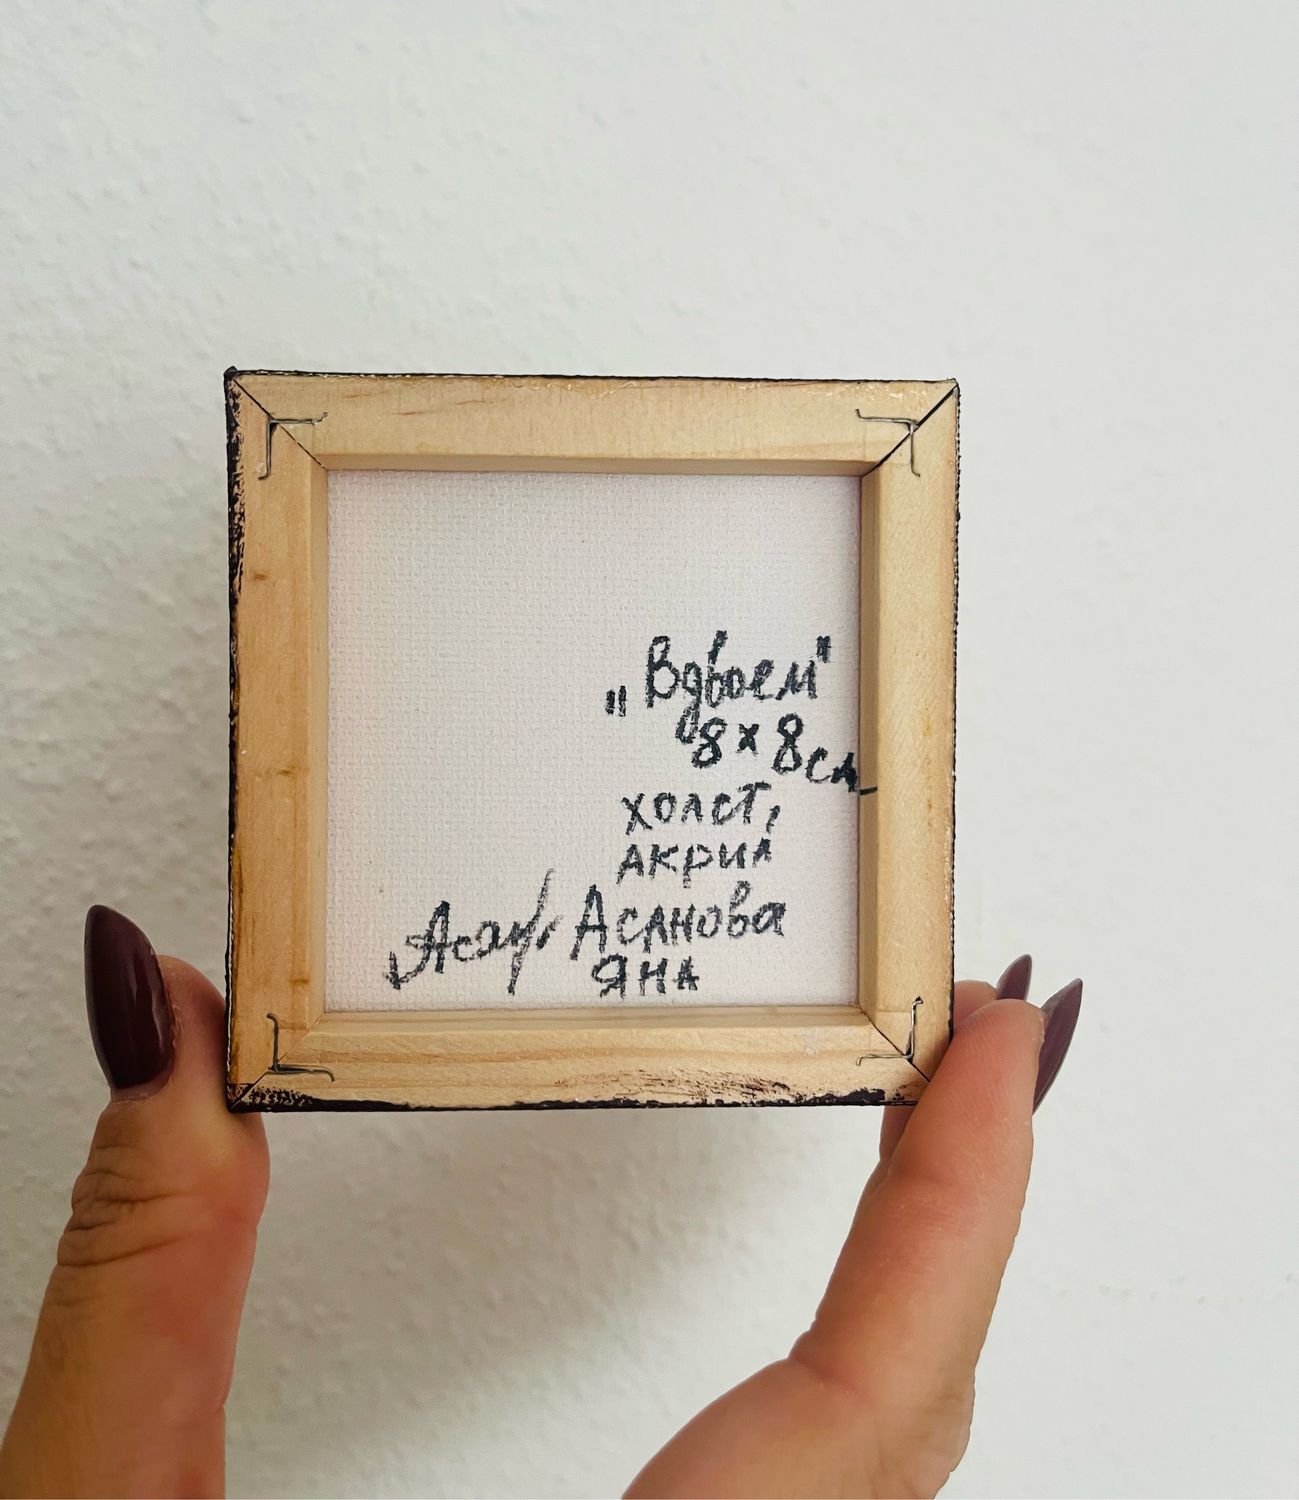 „Вдвоем"
8 х 8 см
холст,
акрил
Асанова
Яна